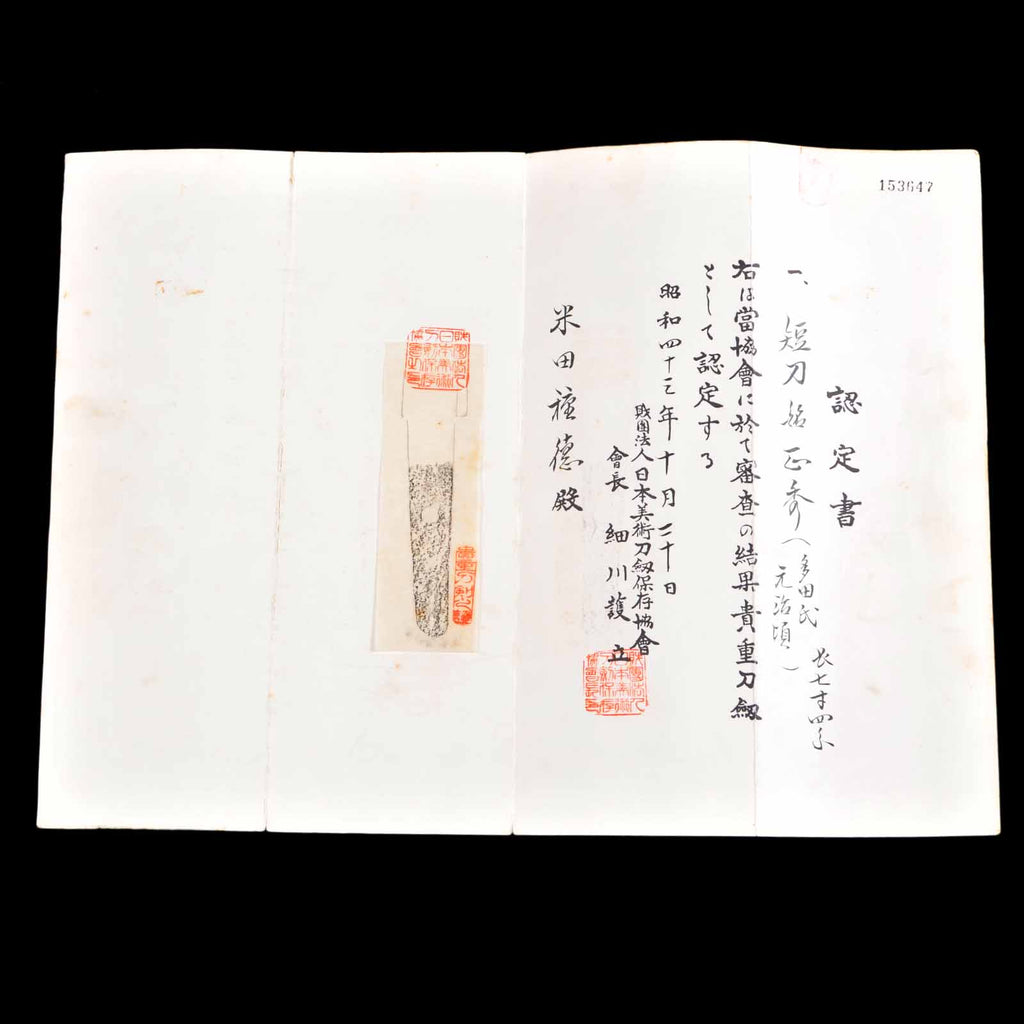 153647
認定書
一、短刀 銘 正秀(多田氏
元治頃)
長七寸四分
右は當協會に於て審査の結果貴重刀劔
として認定する
昭和四十三年十月二十日
財團法人日本美術刀劔保存協會
會長 細川護立
米田種德殿